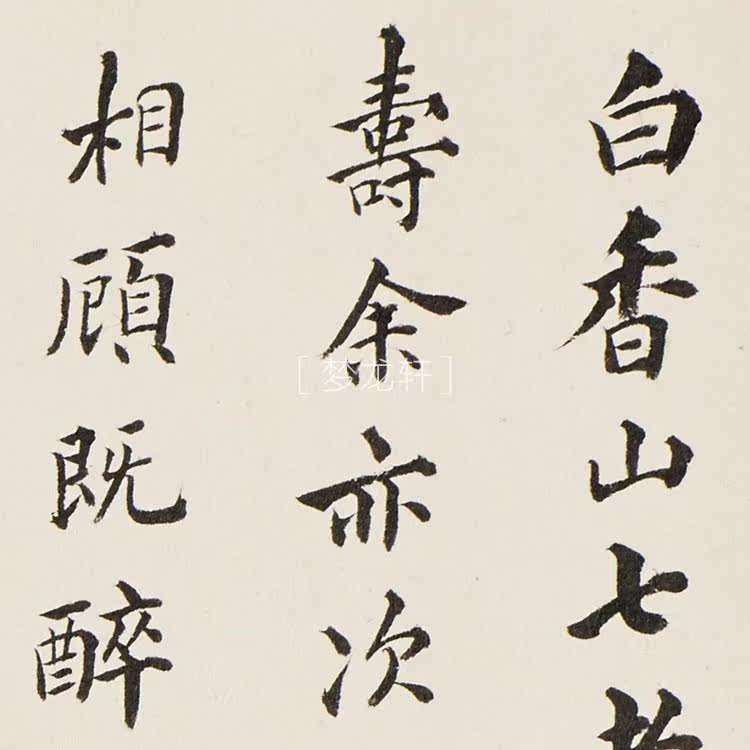 白香山七
壽余亦次
相顧既醉
[梦龙轩]